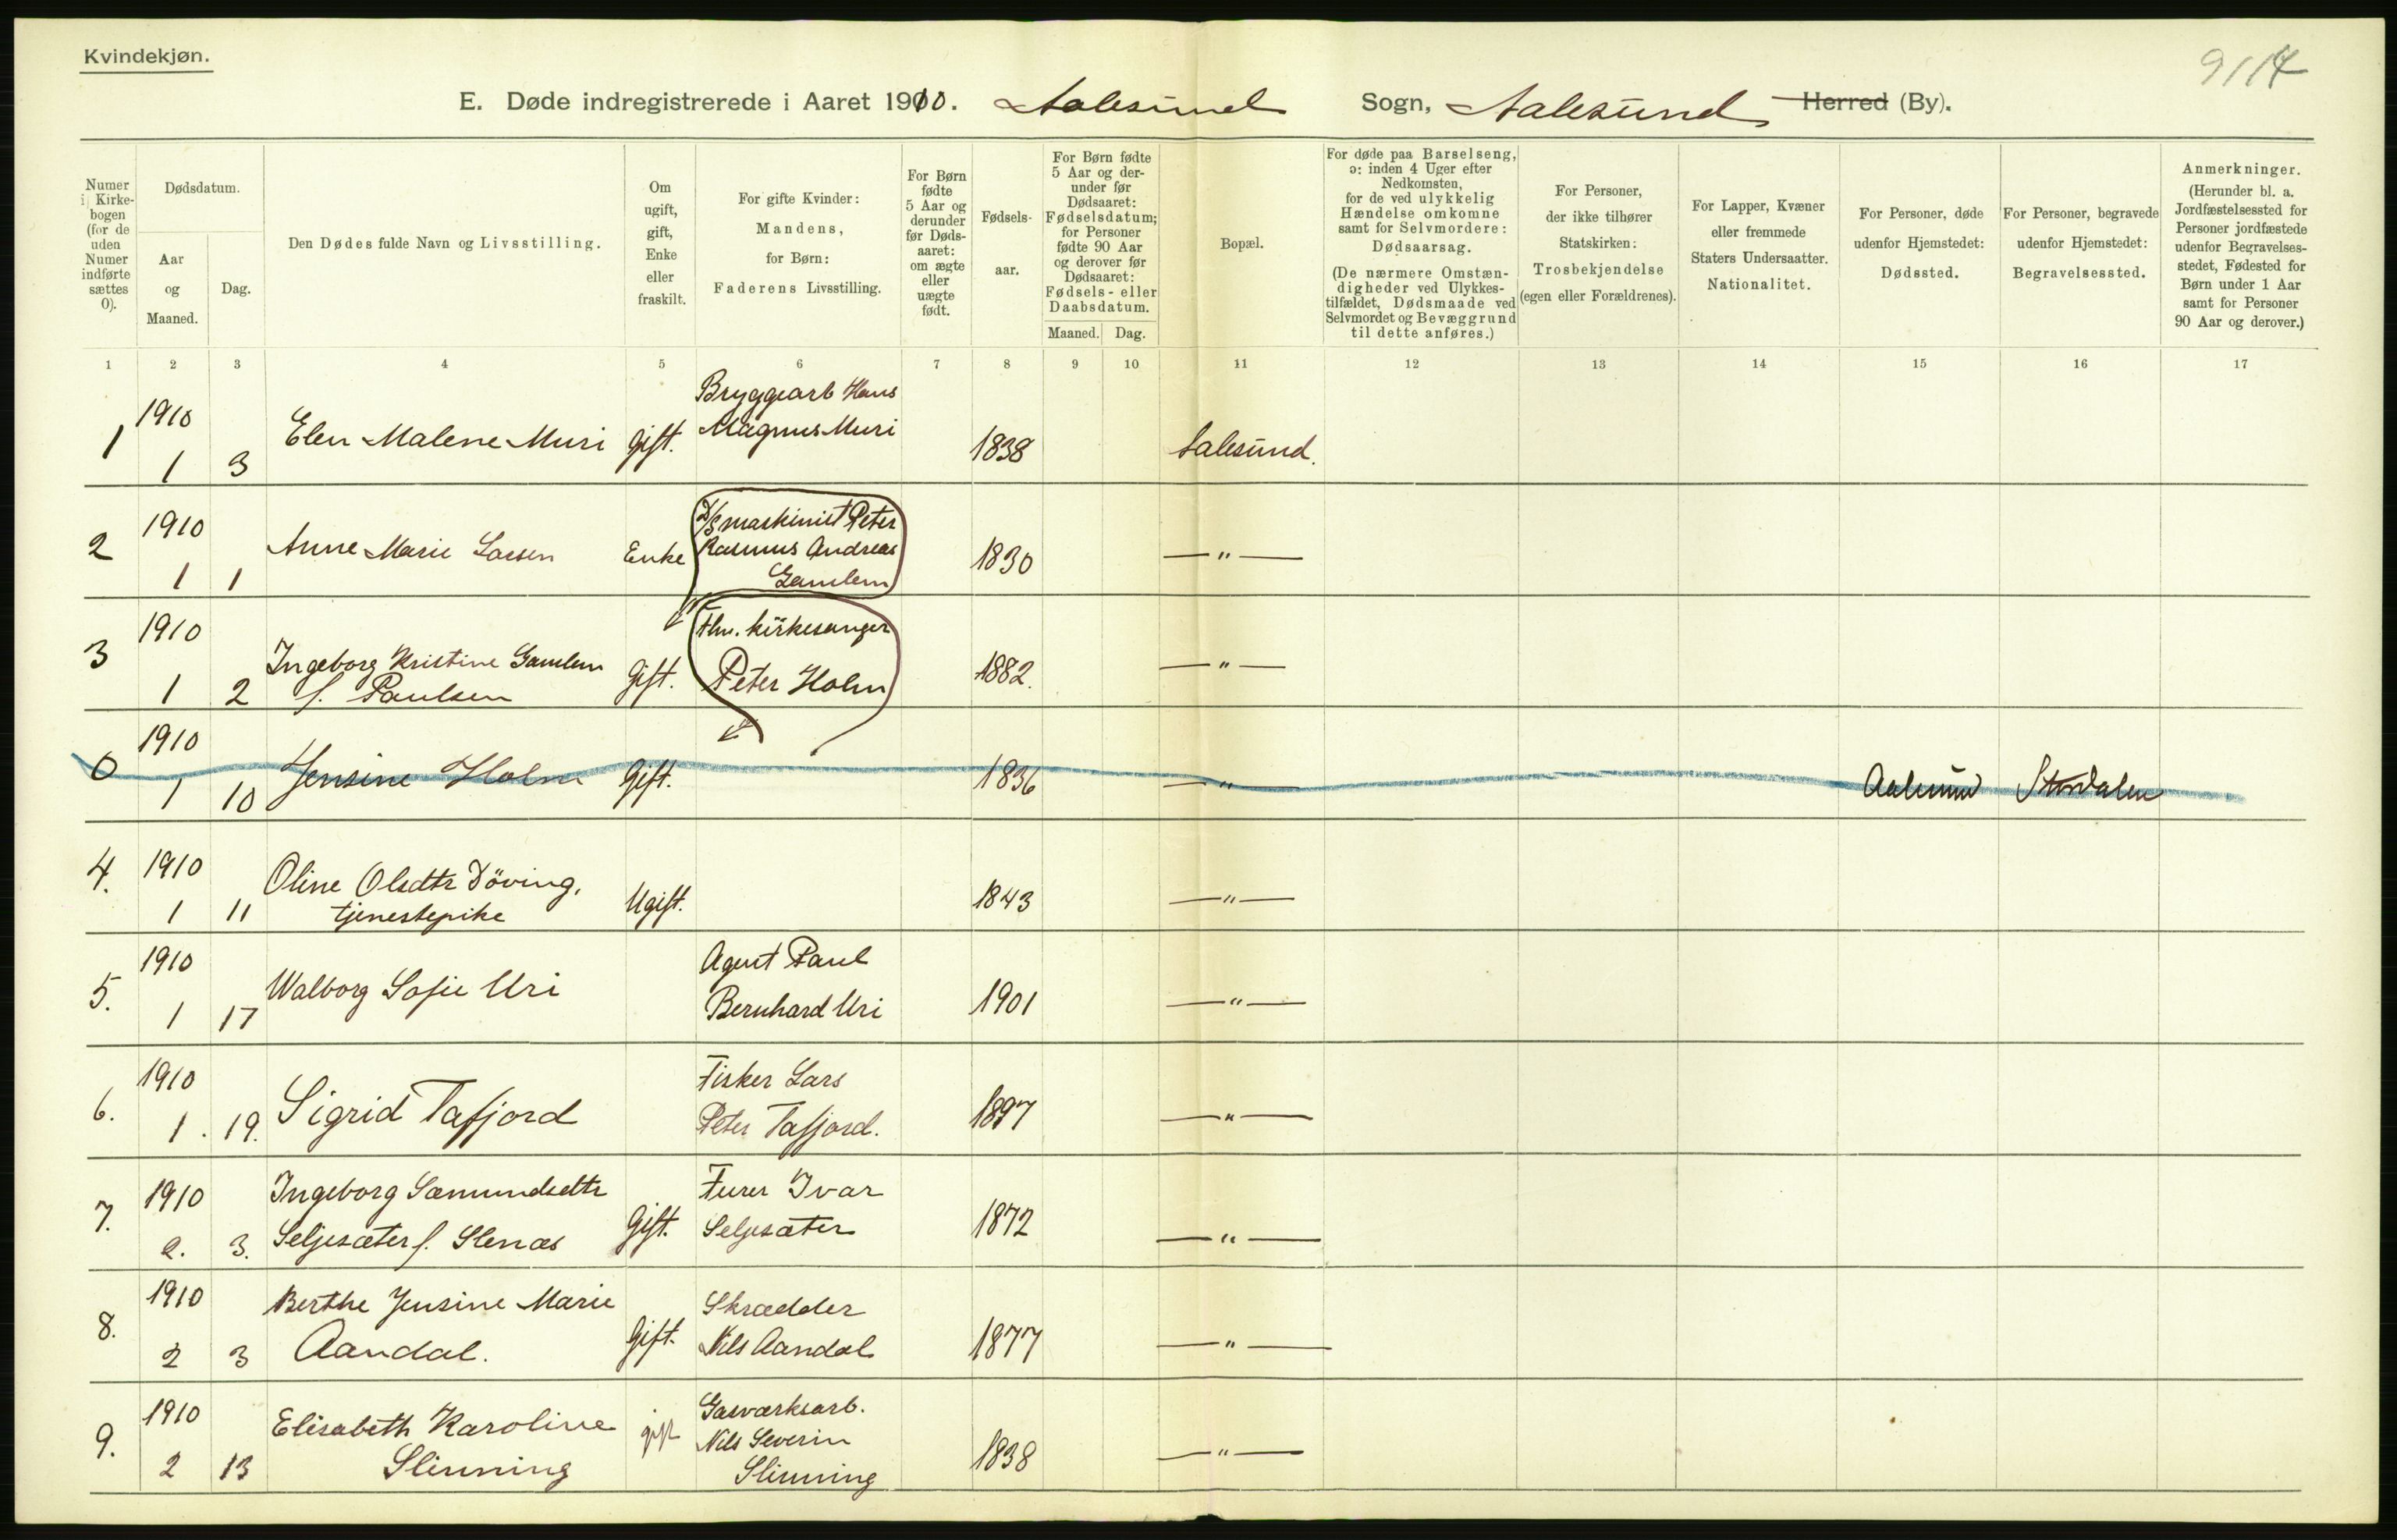 Kvindekjøn.
9114
E. Døde indregistrerede i Aaret 1910. Aalesund Sogn, Aalesund Herred (By).
Numer i Kirkebogen (for de uden Numer indførte sættes 0).
Dødsdatum.
Aar og Maaned.
Dag.
Den Dødes fulde Navn og Livsstilling.
Om ugift, gift, Enke eller fraskilt.
For gifte Kvinder: Mandens, for Børn: Faderens Livsstilling.
For Børn fødte 5 Aar og derunder før Dødsaaret: om ægte eller uægte født.
Fødselsaar.
For Børn fødte 5 Aar og derunder før Dødsaaret: Fødselsdatum; for Personer fødte 90 Aar og derover før Dødsaaret: Fødsels- eller Daabsdatum.
Maaned. Dag.
Bopæl.
For døde paa Barselseng, ɔ: inden 4 Uger efter Nedkomsten, for de ved ulykkelig Hændelse omkomne samt for Selvmordere: Dødsaarsag.
(De nærmere Omstændigheder ved Ulykkestilfældet, Dødsmaade ved Selvmordet og Bevæggrund til dette anføres.)
For Personer, der ikke tilhører Statskirken: Trosbekjendelse (egen eller Forældrenes).
For Lapper, Kvæner eller fremmede Staters Undersaatter. Nationalitet.
For Personer, døde udenfor Hjemstedet: Dødssted.
For Personer, begravede udenfor Hjemstedet: Begravelsessted.
Anmerkninger. (Herunder bl. a. Jordfæstelsessted for Personer jordfæstede udenfor Begravelsesstedet, Fødested for Børn under 1 Aar samt for Personer 90 Aar og derover.)
1 2 3 4 5 6 7 8 9 10 11 12 13 14 15 16 17
1 1910 1 3 Elen Malene Muri gift. Bryggearb Hans Magnus Muri 1838 Aalesund.
2 1910 1 1 Anne Marie Larsen Enke D/S maskinist Peter Rasmus Andreas Gamlem 1830 — " —
3 1910 1 2 Ingeborg Kristine Gamlem f. Paulsen Gift. Fhv. kirkesanger Peter Holm 1882. — " —
0 1910 1 10 Jensine Holm Gift. 1836 — " — Aalesund Stordalen
4. 1910 1 11 Oline Olsdtr Döving, tjenestepike Ugift. 1843 — " —
5. 1910 1 17 Walborg Sofie Uri Agent Paul Bernhard Uri 1901 — " —
6. 1910 1. 19. Sigrid Tafjord Fisker Lars Peter Tafjord. 1897 — " —
7. 1910 2. 3. Ingeborg Sæmundsdtr Seljesæter f. Slenæs Gift. Furer Ivar Seljesæter 1872 — " —
8. 1910 2 3 Berthe Jensine Marie Aandal. Gift. Skrædder Nils Aandal 1877 — " —
9. 1910 2 13 Elisabeth Karoline Slinning gift Gasværksarb. Nils Severin Slinning 1838 — " —